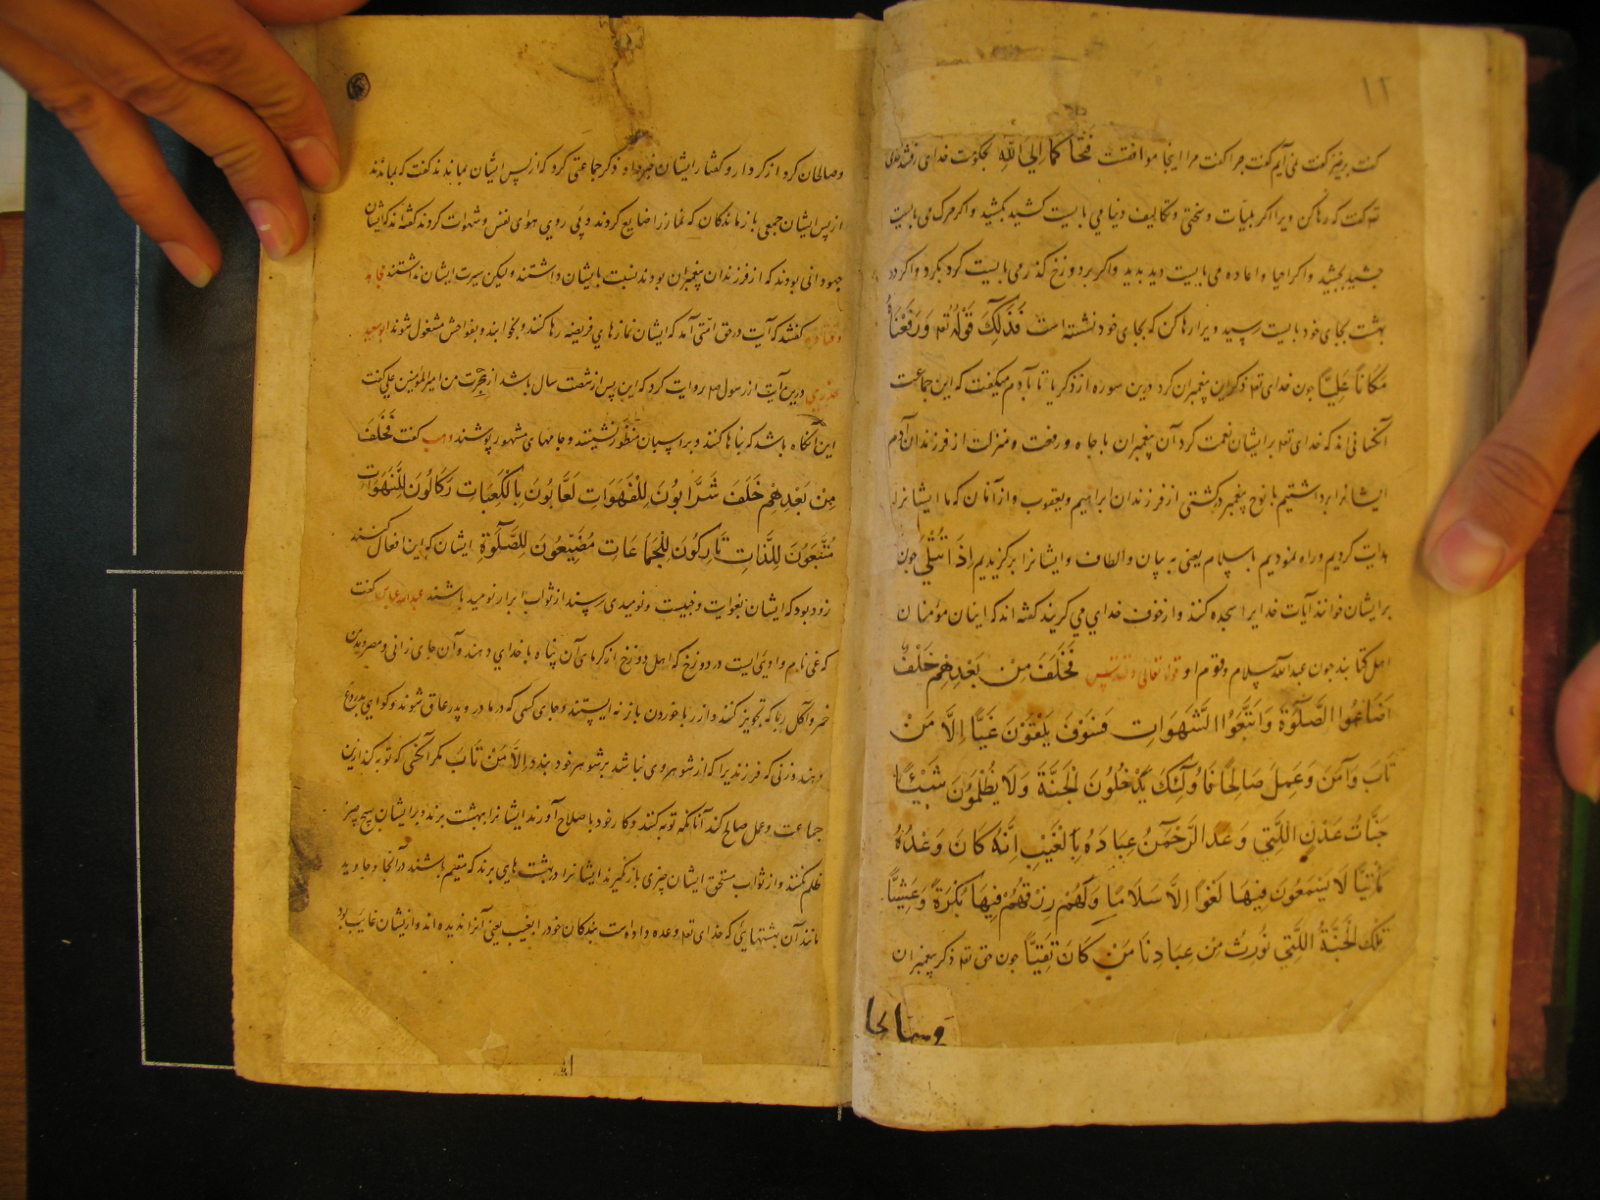 ۱۲
گفت برخیز گفت نمی آیم گفت چرا گفت مرا اینجا موافقت فَتَحَاکَمَا اِلَی اللهِ بحکومت خدای رفتند
تع گفت که رها کن ویرا اگر بلیّات و سختی و تکالیف دنیا می بایست کشید کشید و اگر مرگ می بایست
چشید بچشید و اگر احیا و اعاده می بایست دید بدید و اگر بر دوزخ گذر می بایست کرد بکرد و اگر در
بهشت بجای خود بایست رسید ویرا رها کن که بجای خود نشسته است فَذٰلِکَ قَوْلُهُ تع وَرَفَعْنَاهُ
مَکَاناً عَلِیًّا چون خدای تع ذکر این پیغمبران کرد درین سوره از زکریا تا بآدم میگفت که این جماعت
آنکسانی اند که خدای تع بر ایشان نعمت کرد آن پیغمبران با جاه و رفعت و منزلت از فرزندان آدم
ایشانرا برداشتیم با نوح پیغمبر در کشتی از فرزندان ابراهیم و یعقوب و از آنان که ما ایشانرا
هدایت کردیم و راه نمودیم باسلام یعنی به بیان و الطاف و ایشانرا برگزیدیم اِذَا تُتْلٰی چون
بر ایشان خوانند آیات خدایرا سجده کنند و از خوف خدای می گریند گفته اند که اینان مؤمنان
اهل کتابند چون عبدالله سلام و قوم او قوله تعالی و تقدس فَخَلَفَ مِنْ بَعْدِهِمْ خَلْفٌ
اَضَاعُوا الصَّلٰوةَ وَاتَّبَعُوا الشَّهَوَاتِ فَسَوْفَ یَلْقَوْنَ غَیًّا اِلَّا مَنْ
تَابَ وَآمَنَ وَعَمِلَ صَالِحًا فَاُولٰئِکَ یَدْخُلُونَ الْجَنَّةَ وَلَا یُظْلَمُونَ شَیْئًا
جَنَّاتِ عَدْنٍ اللَّتِی وَعَدَ الرَّحْمٰنُ عِبَادَهُ بِالْغَیْبِ اِنَّهُ کَانَ وَعْدُهُ
مَأْتِیًّا لَا یَسْمَعُونَ فِیهَا لَغْوًا اِلَّا سَلَامًا وَلَهُمْ رِزْقُهُمْ فِیهَا بُکْرَةً وَعَشِیًّا
تِلْکَ الْجَنَّةُ اللَّتِی نُورِثُ مِنْ عِبَادِنَا مَنْ کَانَ تَقِیًّا چون حق تع ذکر پیغمبران
وصالحا
و صالحان کرد از کردار و گفتار ایشان خبر داد و ذکر جماعتی کرد که از پس ایشان بماندند گفت که بماندند
از پس ایشان جمعی بازماندگان که نماز را ضایع کردند و پی روی هوای نفس و شهوات کردند گفته اند که ایشان
جهودانی بودند که از فرزندان پیغمبران بودند نسبت بایشان داشتند ولیکن سیرت ایشان نداشتند مجاهد
و قتاده گفتند که آیت در حق امّتی آمد که ایشان نمازهای فریضه رها کنند و بخوابند و بفواحش مشغول شوند ابوسعید
خدری درین آیت از رسول ص روایت کرد که این پس از شصت سال باشد از هجرت من امیرالمؤمنین علی گفت
این آنگاه باشد که بناها کنند و بر اسبان منظور نشینند و جامهای مشهور پوشند وهب گفت فَخَلَفَ
مِنْ بَعْدِهِمْ خَلَفَ شَرَّابُونَ لِلْقَهَوَاتِ لَعَّابُونَ بِالْکَعَبَاتِ رَکَّابُونَ لِلشَّهَوَاتِ
مُتَّبِعُونَ لِلَّذَّاتِ تَارِکُونَ لِلْجَمَاعَاتِ مُضَیِّعُونَ لِلصَّلٰوةِ ایشان که این افعال کنند
زود بود که ایشان بغوایت و خیبت و نومیدی رسند از ثواب ابرار نومید باشند عبدالله عباس گفت
که غی نام وادیی است در دوزخ که اهل دوزخ از گرمای آن پناه با خدای دهند و آن جای زانی و مصر بر
خمر و آکل ربا که تجویز کنند و از ربا خوردن باز نه ایستند و جای کسی که در مادر و پدر عاق شوند و گواهی بدروغ
دهند و زنی که فرزندیرا که از شوهر وی نباشد بر شوهر خود بندد اِلَّا مَنْ تَابَ مگر آنکسی که توبه کند ازین
جماعت و عمل صالح کند آنانکه توبه کنند و کار خود با صلاح آورند ایشانرا ببهشت برند و بر ایشان هیچ چیز
ظلم نکنند و از ثواب مستحق ایشان چیزی باز نگیرند ایشانرا در بهشت هایی برند که مقیم باشند در آنجا و جاوید
مانند آن بهشتهایی که خدای تع وعده داده است بندگان خود را بغیب یعنی آنرا ندیده اند و از یشان غایب بود